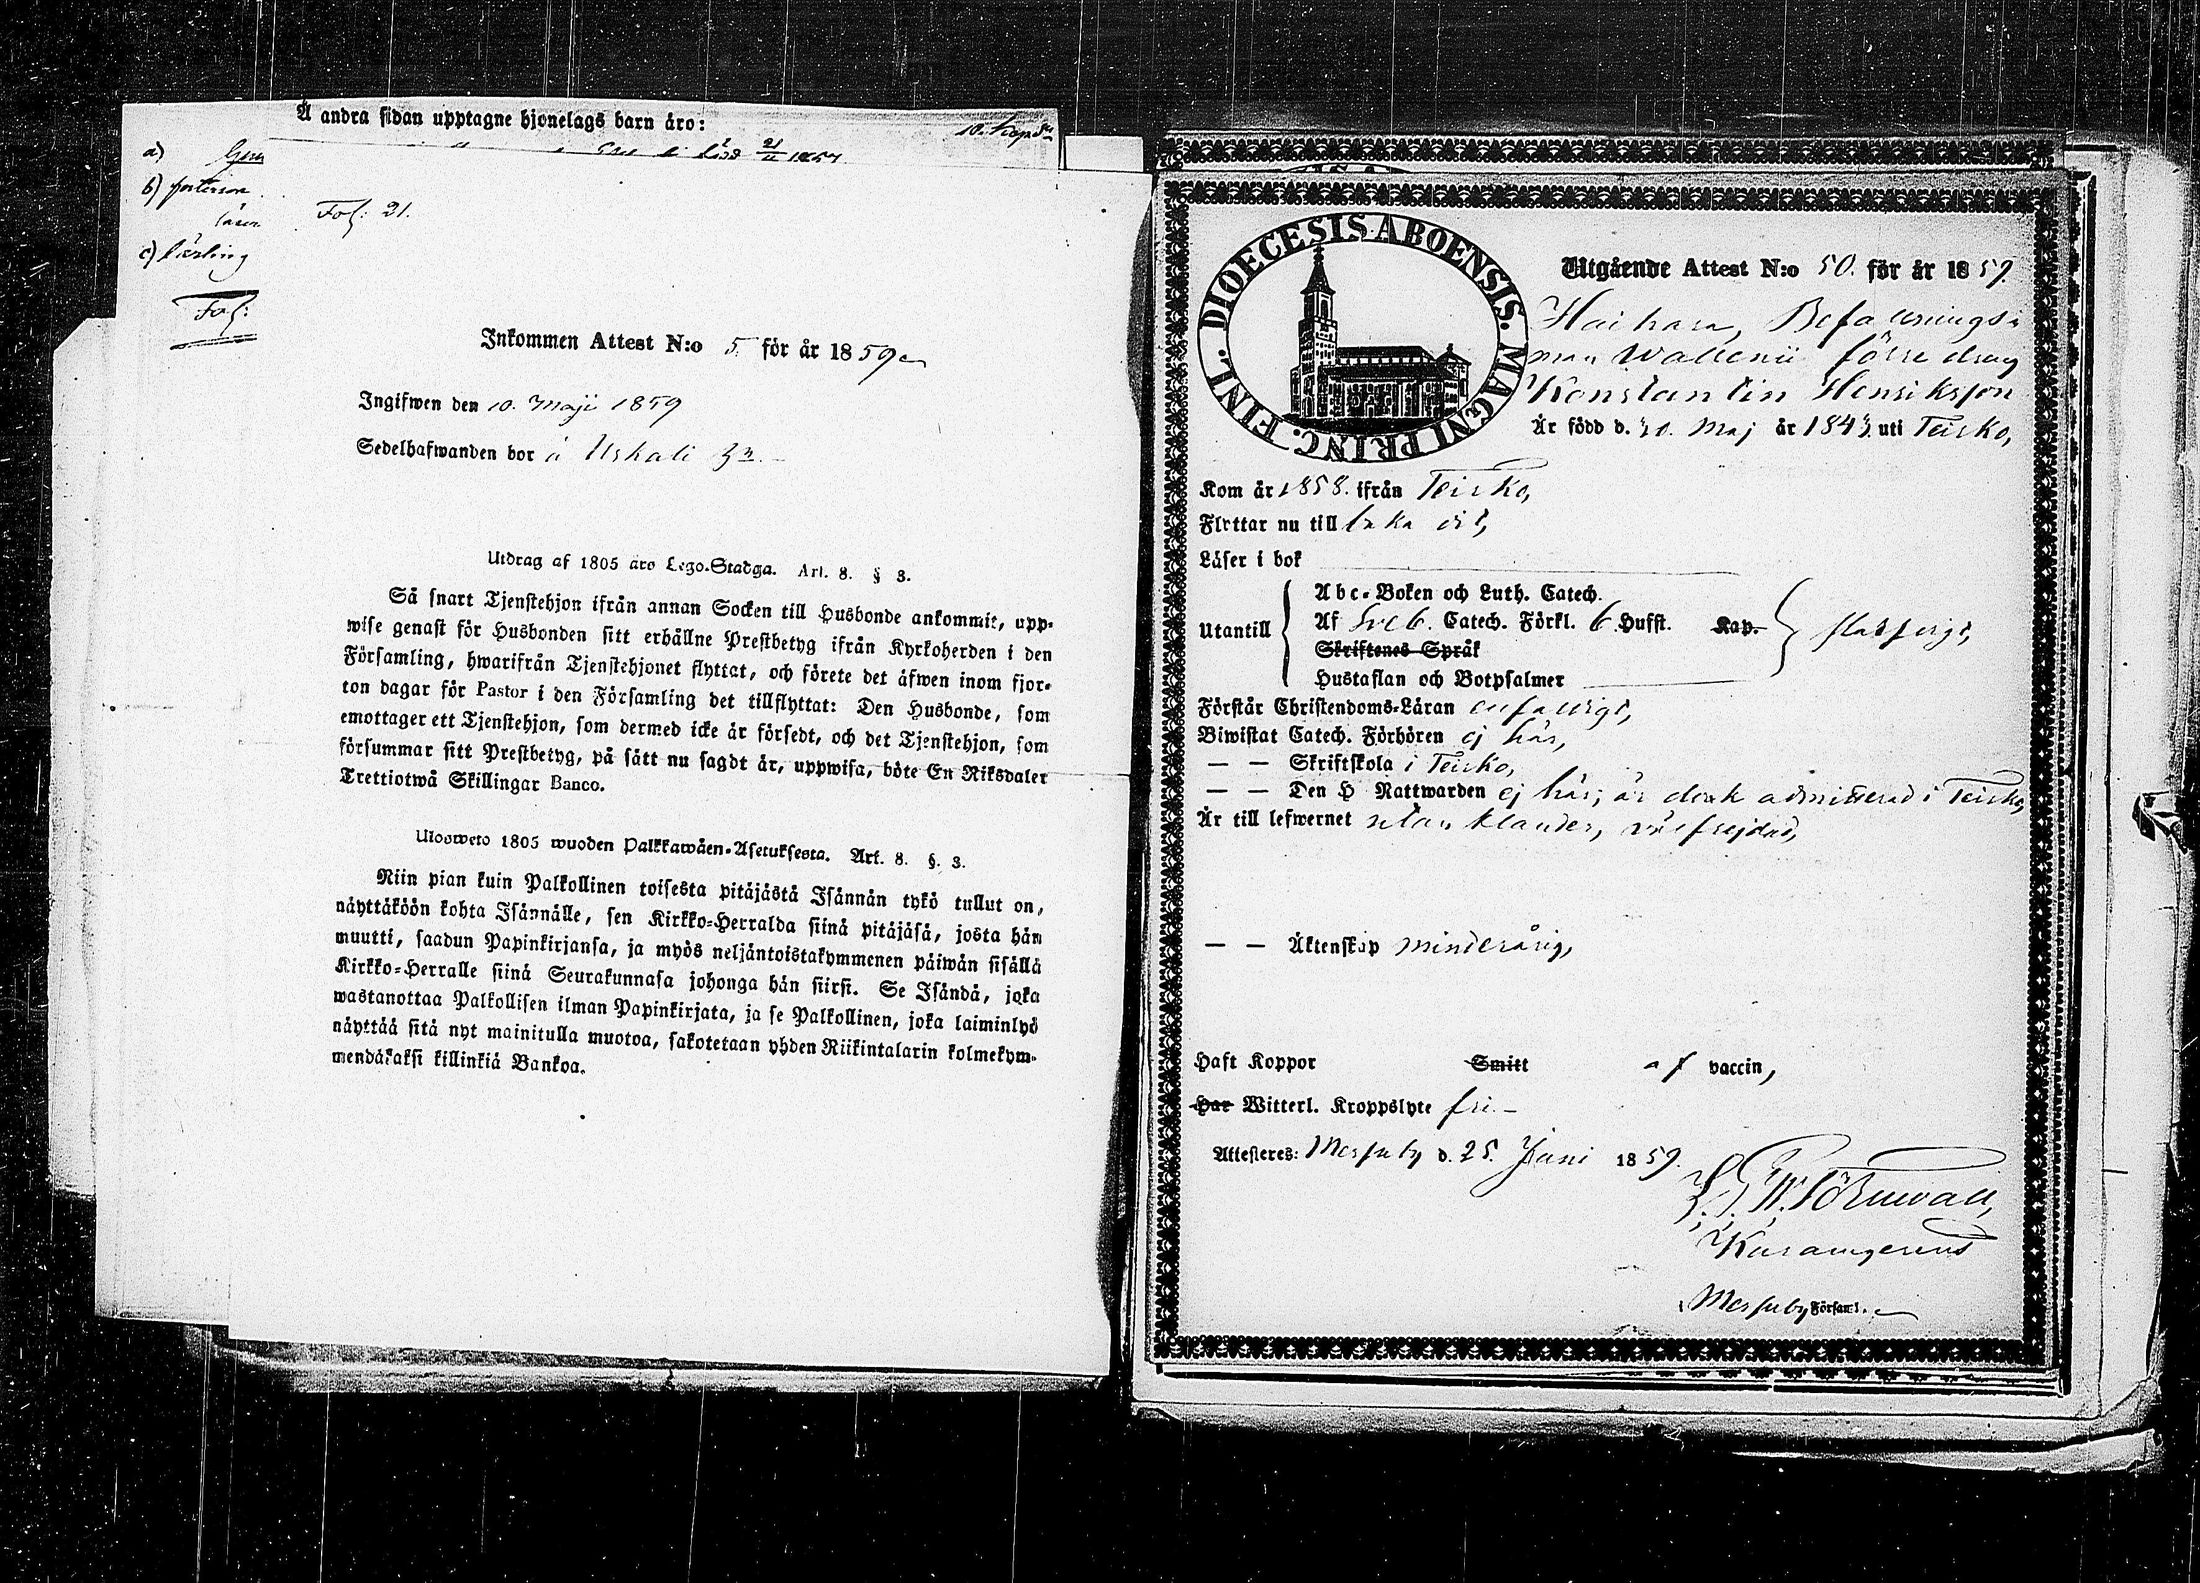 Å andra sidan upptagne hjonelags barn äro:
10. Kap
a)
född 21/11 1857
b)
c) lärling
Fol:
Fol: 21.
Inkommen Attest N:o 5. för år 1859
Ingifwen den 10. Maji 1859
Sedelhafwanden bor å Uskali
Utdrag af 1805 års Lego-Stadga. Art. 8. § 3.
Så snart Tjenstehjon ifrån annan Socken till Husbonde ankommit, upp-
wise genast för Husbonden sitt erhållne Prestbetyg ifrån Kyrkoherden i den
Församling, hwarifrån Tjenstehjonet flyttat, och förete det äfwen inom fjor-
ton dagar för Pastor i den Församling det tillflyttat: Den Husbonde, som
emottager ett Tjenstehjon, som dermed icke är försedt, och det Tjenstehjon, som
försummar sitt Prestbetyg, på sätt nu sagdt är, uppwisa, böte En Riksdaler
Trettiotwå Skillingar Banco.
Ulosweto 1805 wuoden Palkkawäen-Asetuksesta. Art. 8. §. 3.
Niin pian kuin Palkollinen toisesta pitäjästä Isännän tykö tullut on,
näyttäköön kohta Isännälle, sen Kirkko-Herralda siinä pitäjäsä, josta hän
muutti, saadun Papinkirjansa, ja myös neljäntoistakymmenen päiwän sisällä
Kirkko-Herralle siinä Seurakunnasa johonga hän siirsi. Se Isändä, joka
wastanottaa Palkollisen ilman Papinkirjata, ja se Palkollinen, joka laiminlyö
näyttää sitä nyt mainitulla muotoa, sakotetaan yhden Riikintalarin kolmekym-
mendäkaksi killinkiä Bankoa.
DIOECESIS ABOENSIS. MAGNI PRINC. FINL.
Utgående Attest N:o 50. för år 1859.
Haihara, Befallnings-
man Wallenii förre dreng
Konstantin Henriksson
Är född d. 20. Maj år 1843. uti Teisko,
Kom år 1858. ifrån Teisko,
Flyttar nu till baka dit,
Läser i bok
Abc-Boken och Luth. Catech.
Utantill Af Sveb. Catech. Förkl. 6 Hufst. Kap.
Skriftenes Språk
Hustaflan och Botpsalmer
Förstår Christendoms-Läran enfaldigt,
Biwistat Catech. Förhören ej här,
— — Skriftskola i Teisko,
— — Den H Nattwarden ej här; är dock admitterad i Teisko,
Är till lefwernet utan klander, välfrejdad,
— — Äktenskap minderårig,
Haft Koppor Smitt af vaccin,
Har Witterl. Kroppslyte fri.—
Attesteres: Messuby d. 25. Juni 1859.
Messuby Församl.